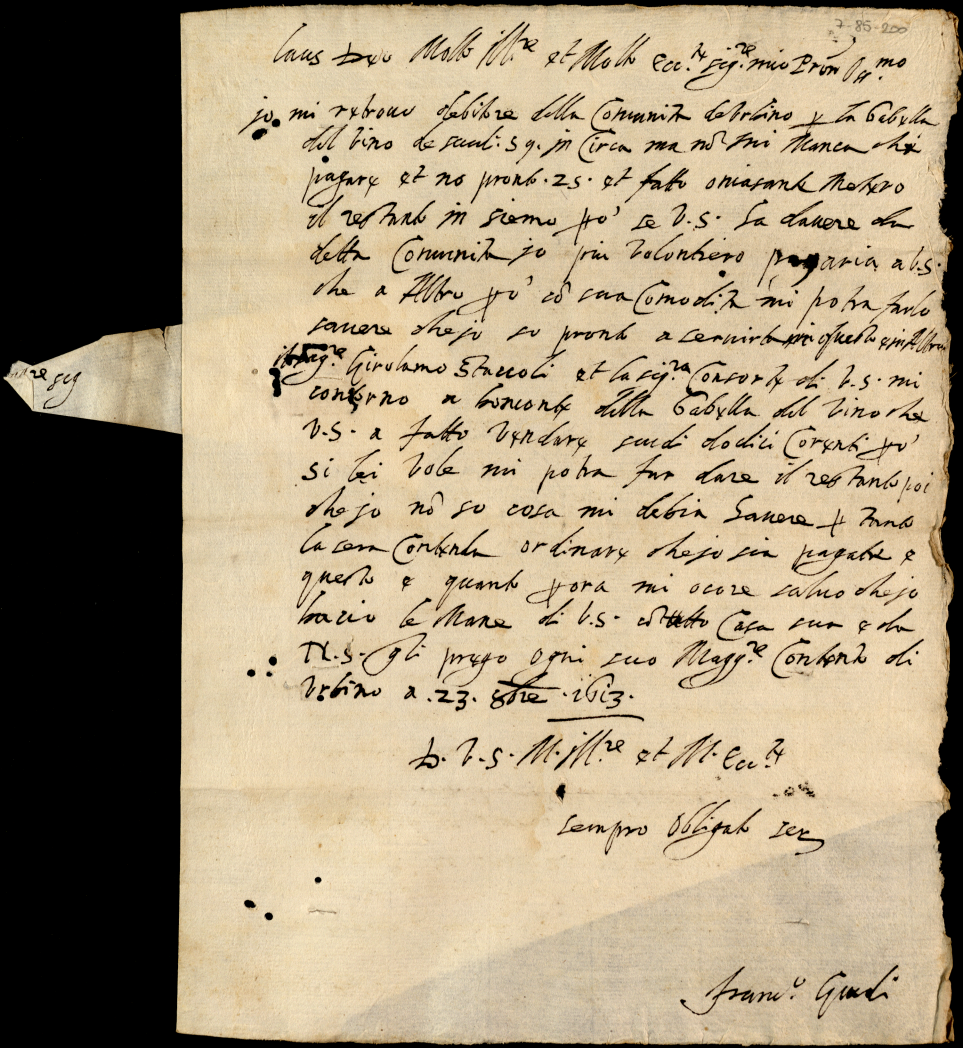 7-85-200
Laus Deo Molto Ill.re et Molto Ecc.te sig.re mio Pron
jo mi retrovo debitore della Comunita de Urbino p la Gabella
del vino de scudi. 59. in Circa ma nõ mi Manca che
pagare et no pronti .25. et fatto
il restante in sieme pò se V.S. ha davere da
detta Comunita jo piu volontiero pagaria a V.S.
che a Altro pò cõ sua Comodita mi potra farlo
savere che jo so pronto a servirla in questo e in Altro
il sig.re Girolamo Staccoli et la sig.ra Consorte di V.S. mi
a bonconte della Gabella del vino che
V.S. a fatto vendare scudi dodici Corenti pò
si lei vole mi potra far dare il restante poi
che jo nõ so cosa mi debia havere p tanto
la sera Contenta ordinare che jo sia pagato e
questo e quanto p ora mi ocore salvo che jo
bacio le Mane di V.S. cõ tutto Casa sua e da
N.S. gli prego ogni suo Magg.re Contento di
Urbino a .23. 8bre .1613.
D. V.S. M. Ill.re et M. Ecc.te
sempro Obligato ser
Franc.o Guidi
sig